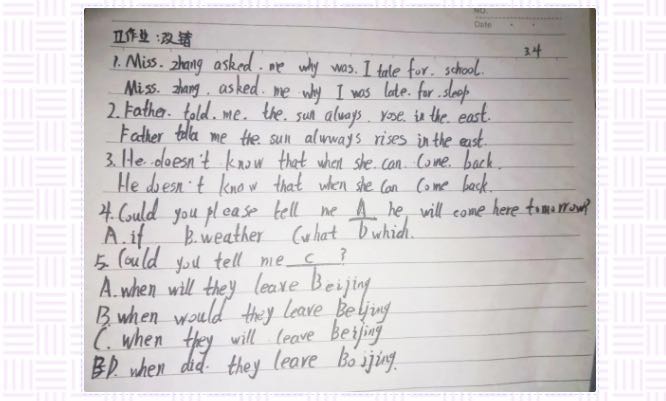 NO.
Date
II作业:改错
3.4
1. Miss. zhang asked. me why was. I tale for. school.
Miss. zhang. asked. me why I was late. for. sleep
2. Father. told. me. the. sun always. rose. in the. east.
Father me the sun always rises in the east.
3. He doesn't know that when she. can. come. back.
He doesn't know that when she can come back.
4. Could you please tell me A he will come here tomorrow?
A. if B. weather C what D which.
5. Could you tell me c ?
A. when will they leave Beijing
B when would they leave Beijing
C. when they will leave Beijing
D. when did. they leave Boijing.